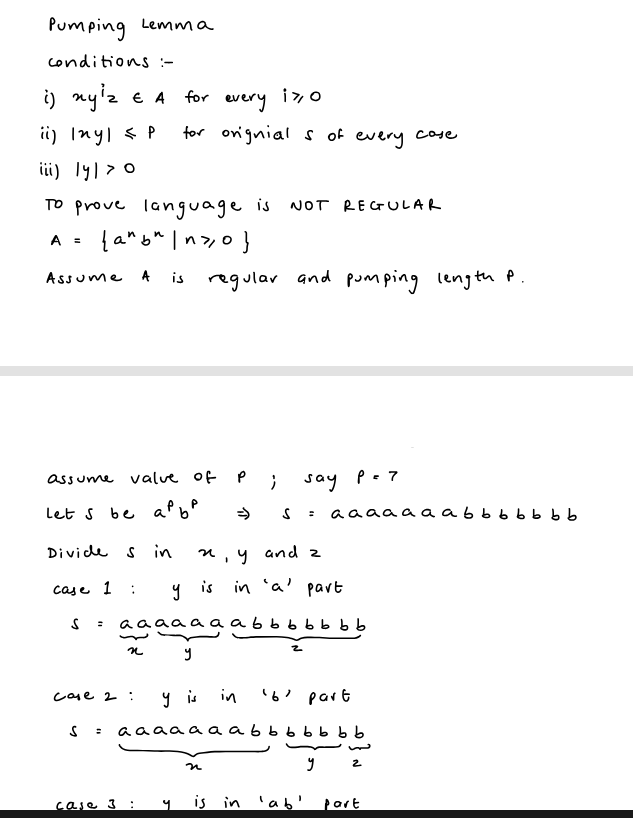 Pumping Lemma
conditions :-
i) xyⁱz ∈ A for every i ⩾ 0
ii) |xy| ⩽ P for orignial s of every case
iii) |y| > 0
To prove language is NOT REGULAR
A = {aⁿbⁿ | n ⩾ 0}
Assume A is regular and pumping length P.
assume value of P ; say P = 7
Let s be aᴾbᴾ ⇒ s = aaaaaaabbbbbbb
Divide s in x, y and z
case 1 : y is in 'a' part
s = aaaaaaabbbbbbb
x y z
case 2 : y is in 'b' part
s = aaaaaaabbbbbbb
x y z
case 3 : y is in 'ab' part